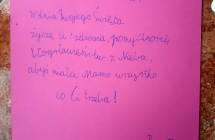 W dniu Twojego Święta
życzę Ci zdrowia, pomyślności
błogosławieństw z Nieba,
abyś miała Mamo wszystko
co Ci trzeba!